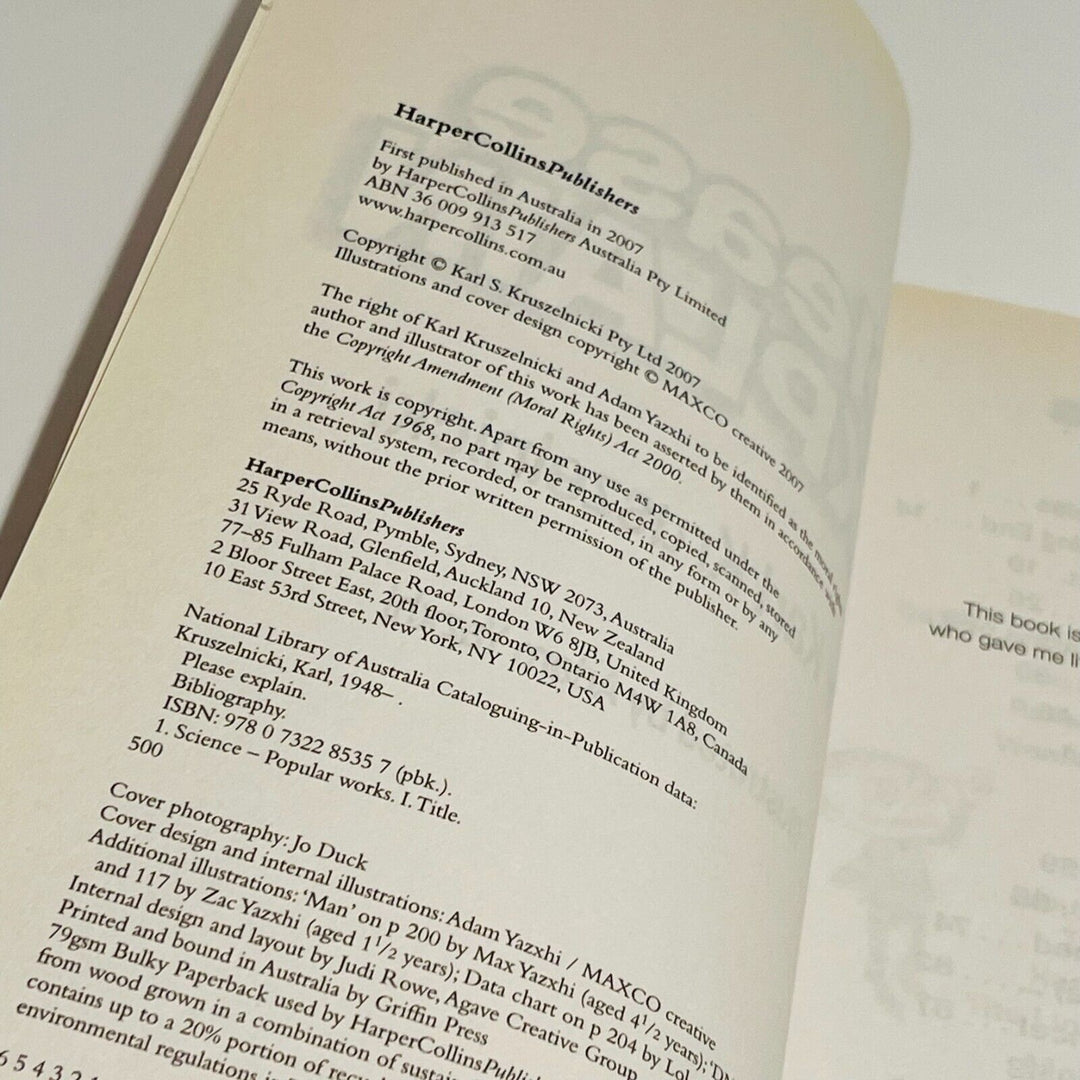 HarperCollinsPublishers
First published in Australia in 2007
by HarperCollinsPublishers Australia Pty Limited
ABN 36 009 913 517
www.harpercollins.com.au
Copyright © Karl S. Kruszelnicki Pty Ltd 2007
Illustrations and cover design copyright © MAXCO creative 2007
The right of Karl Kruszelnicki and Adam Yazxhi to be identified as the moral
author and illustrator of this work has been asserted by them in accordance with
the Copyright Amendment (Moral Rights) Act 2000.
This work is copyright. Apart from any use as permitted under the
Copyright Act 1968, no part may be reproduced, copied, scanned, stored
in a retrieval system, recorded, or transmitted, in any form or by any
means, without the prior written permission of the publisher.
HarperCollinsPublishers
25 Ryde Road, Pymble, Sydney, NSW 2073, Australia
31 View Road, Glenfield, Auckland 10, New Zealand
77–85 Fulham Palace Road, London W6 8JB, United Kingdom
2 Bloor Street East, 20th floor, Toronto, Ontario M4W 1A8, Canada
10 East 53rd Street, New York, NY 10022, USA
National Library of Australia Cataloguing-in-Publication data:
Kruszelnicki, Karl, 1948– .
Please explain.
Bibliography.
ISBN: 978 0 7322 8535 7 (pbk.).
1. Science – Popular works. I. Title.
500
Cover photography: Jo Duck
Cover design and internal illustrations: Adam Yazxhi / MAXCO creative
Additional illustrations: ‘Man’ on p 200 by Max Yazxhi (aged 4 1/2 years);
and 117 by Zac Yazxhi (aged 1 1/2 years); Data chart on p 204 by Lol
Internal design and layout by Judi Rowe, Agave Creative Group
Printed and bound in Australia by Griffin Press
79gsm Bulky Paperback used by HarperCollinsPubli
from wood grown in a combination of sustai
contains up to a 20% portion of recy
environmental regulations
6 5 4 3 2
This book is
who gave me li